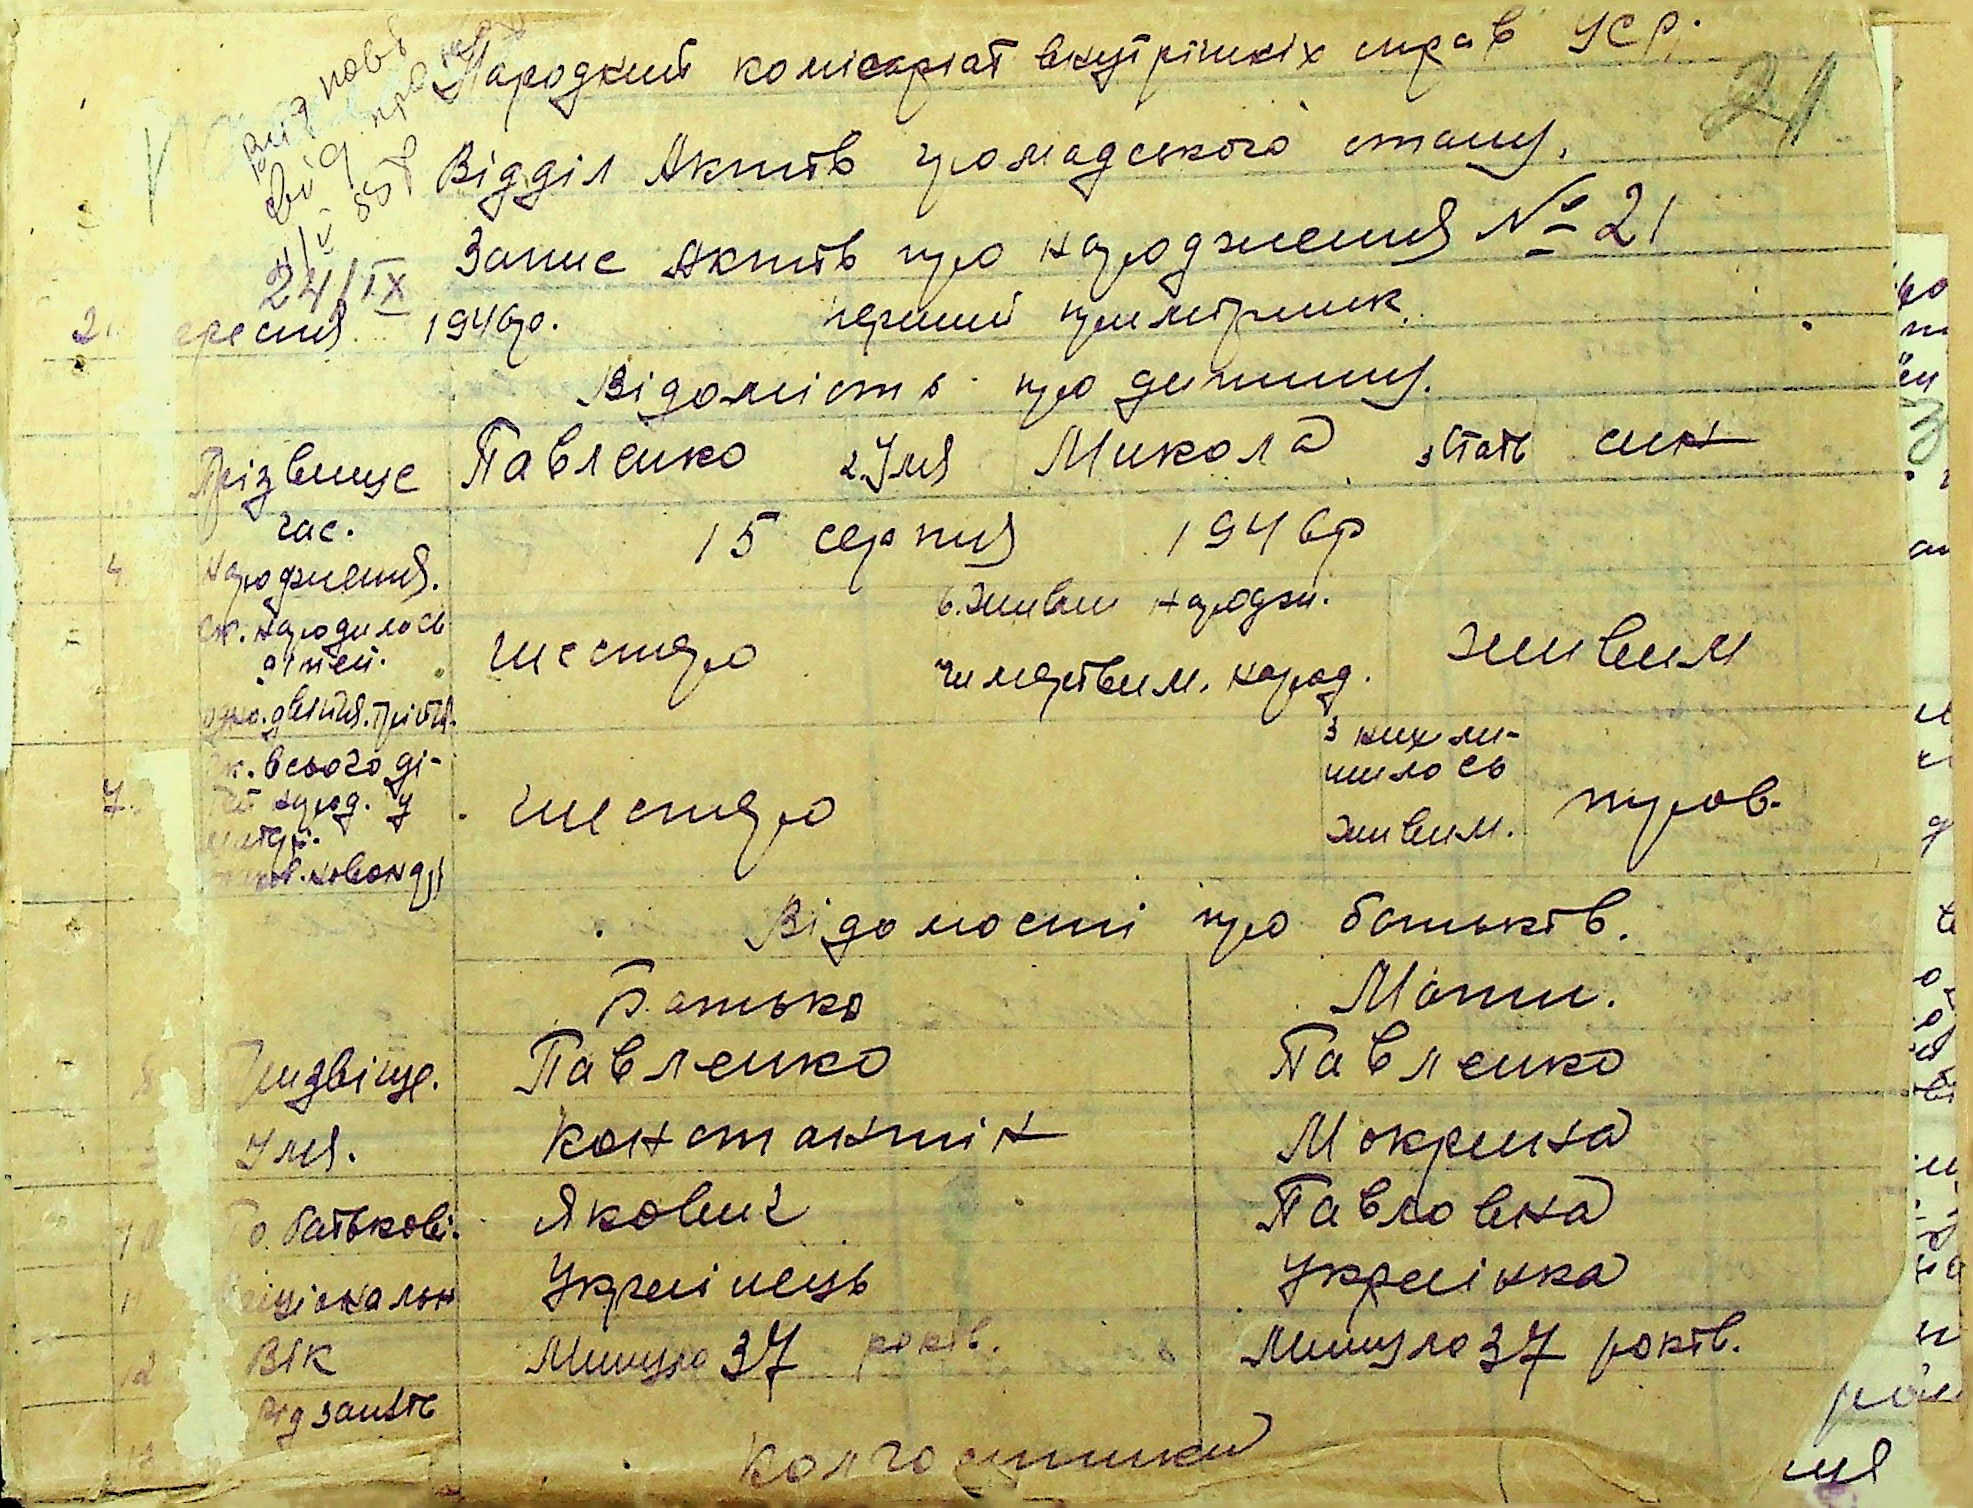 Народний комісаріат внутрішніх справ УСР.
21
Відділ Актів громадського стану.
Запис Актів про народження № 21
24/IX
ересня 1946р. перший примірник.
Відомість про дитину.
Прізвище Павленко 2. Імя Микола 3 Стать син
час.
4. народження. 15 серпня 1946р
ск. народилось дітей. шестеро 6. Живим народж. чи мертвим. народ. живим
одно. двійня. трійня.
7. ск. всього ді-
тей народ. у шестеро з них ли-
шилось
живим. троє.
матері.
Відомості про батьків.
Батько Мати.
8 Призвіще. Павленко Павленко
Імя. Констактін Мокрина
10 По батькові. Якович Павловна
11 Національн Українець Українка
12 Вік Минуло 37 років. Минуло 37 років.
13 Рід занять
Колгоспники